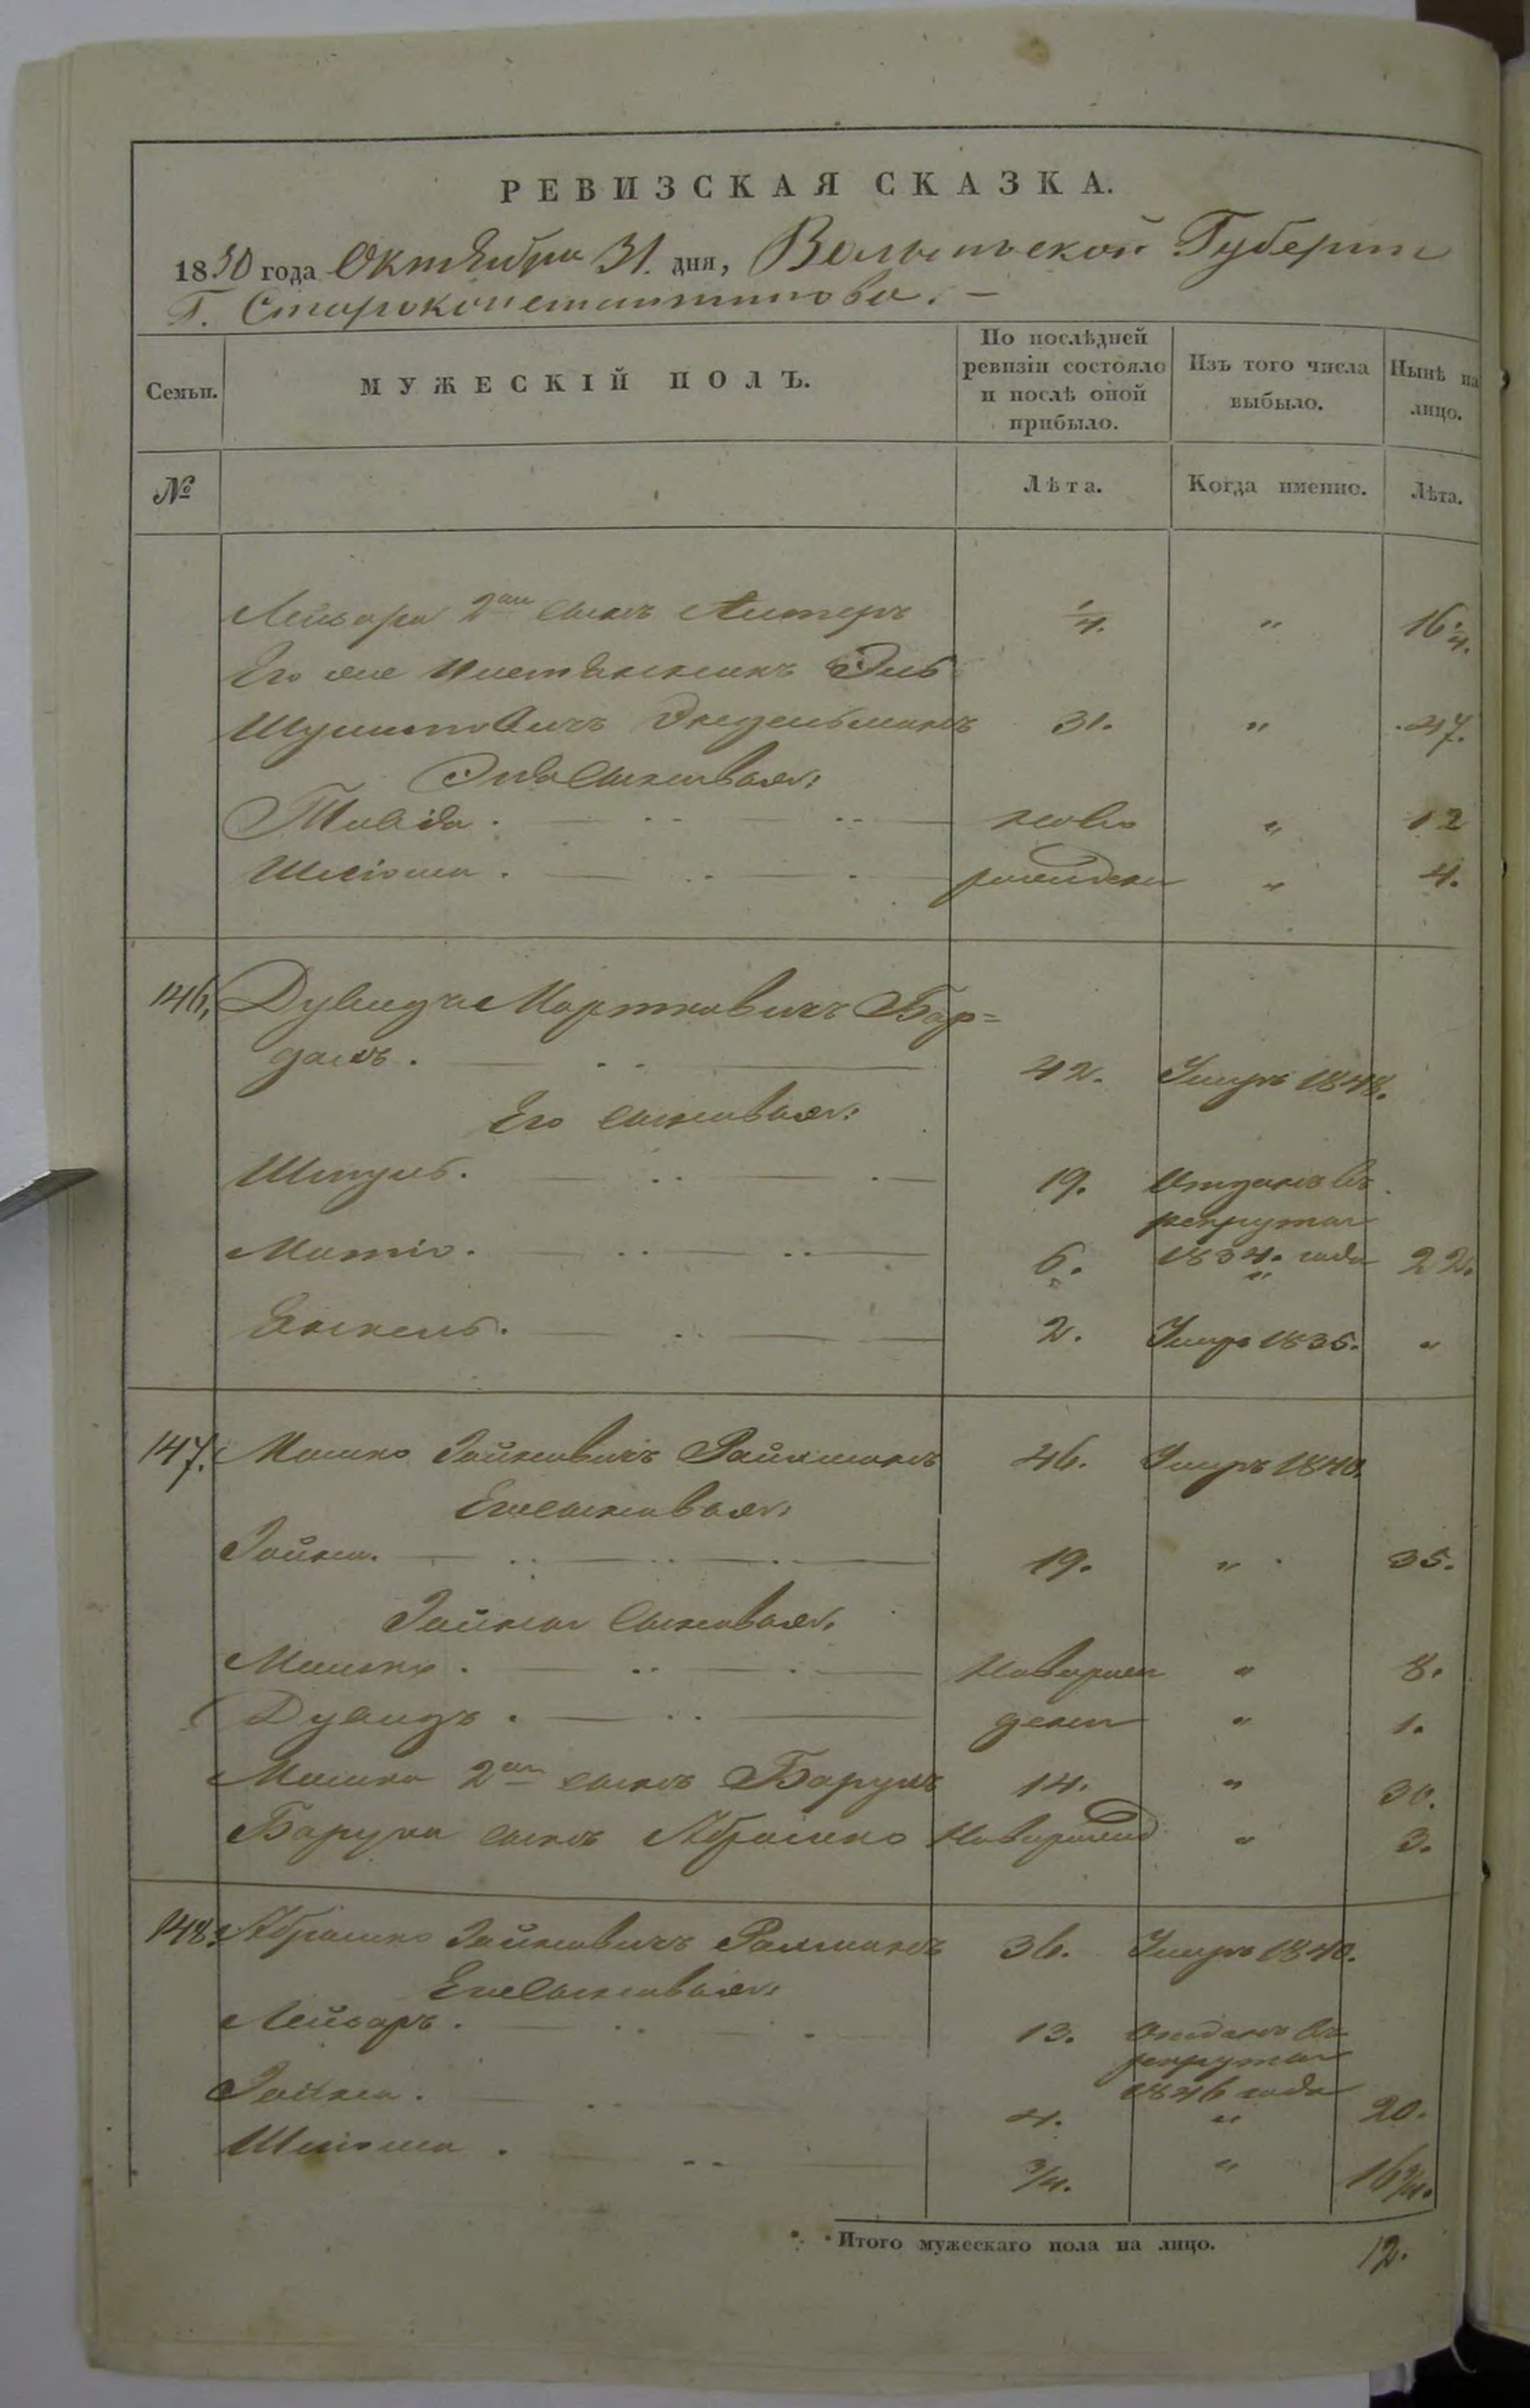 РЕВИЗСКАЯ СКАЗКА.
1850 года Октября 31. дня, Волынской Губернии
Г. Староконстантинова. —
Семьи.
МУЖЕСКІЙ ПОЛЪ.
По послѣдней ревизіи состояло и послѣ оной прибыло.
Изъ того числа выбыло.
Нынѣ на лицо.
№
Лѣта.
Когда именно.
Лѣта.
Лейзора 2й сынъ Антеръ 1/4. " 16 1/4.
Его же племянникъ Эль
Шулимовичъ 31. " 47.
Эля сыновья:
ново " 12
Шлiома. рожденъ " 4.
146. Дувидъ Мортковичъ Бар=
данъ. 42. Умеръ 1848.
Его сыновья:
Шмуль. 19. Отданъ въ
рекруты
Мотiо. 6. 1834. года 22.
"
2. Умеръ 1835. "
147. Мошко Зайновичъ Райхманъ 46. Умеръ 1840.
Его сыновья:
Зайна. 19. " 35.
Зайны сыновья:
Мошко. Новорож " 8.
Дувидъ. дены " 1.
Мошка 2й сынъ Барухъ 14. " 30.
Баруха сынъ Абрамко Новорожд " 3.
148. Абрамко Зайновичъ 36. Умеръ 1840.
Его сыновья:
Лейзоръ. 13. Отданъ въ
рекруты
1846 года
Зайна. 4. " 20.
Шлiома. 3/4. " 16 3/4.
Итого мужескаго пола на лицо. 12.